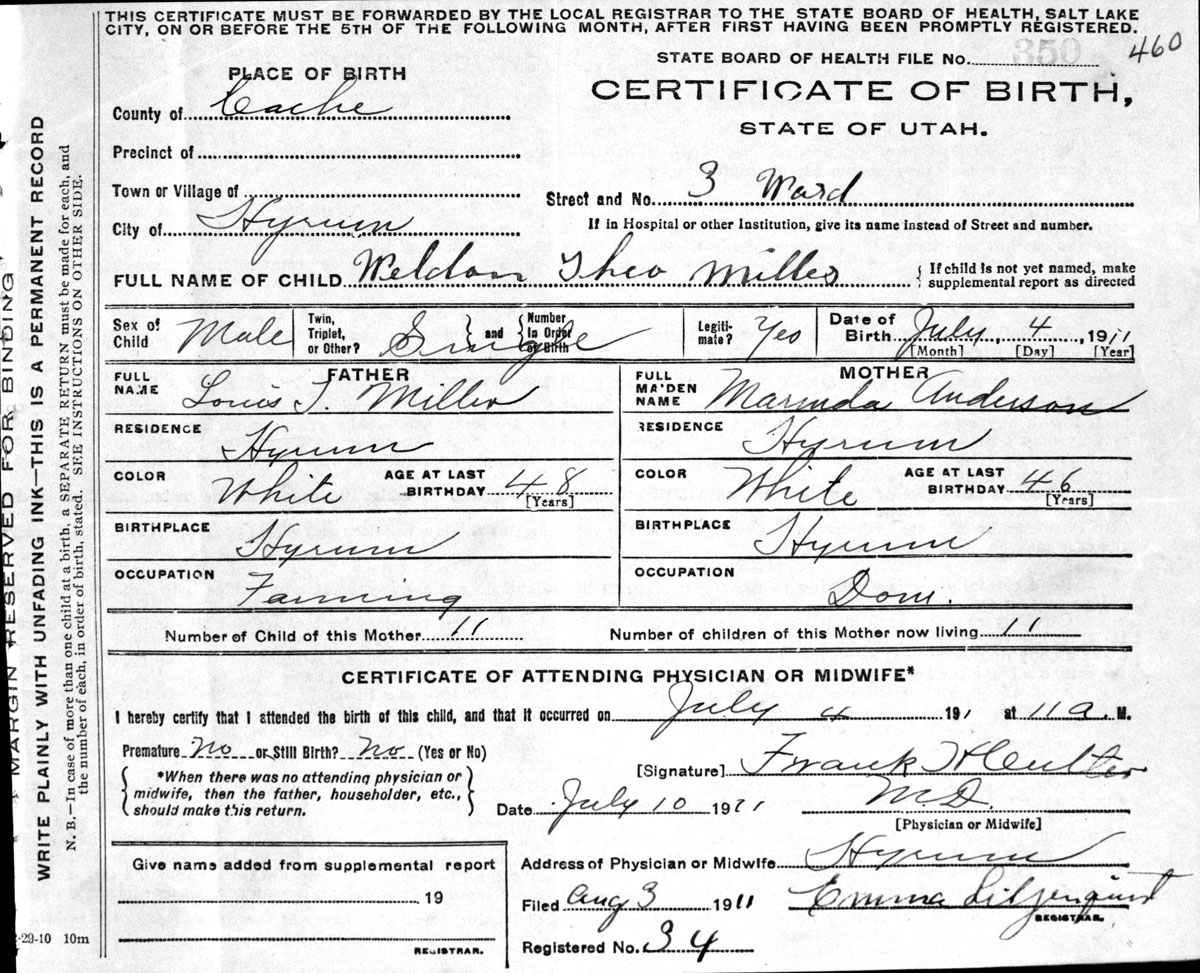 THIS CERTIFICATE MUST BE FORWARDED BY THE LOCAL REGISTRAR TO THE STATE BOARD OF HEALTH, SALT LAKE
CITY, ON OR BEFORE THE 5TH OF THE FOLLOWING MONTH, AFTER FIRST HAVING BEEN PROMPTLY REGISTERED.
460
STATE BOARD OF HEALTH FILE No. 350
PLACE OF BIRTH
CERTIFICATE OF BIRTH,
STATE OF UTAH.
County of Cache
Precinct of
Town or Village of
Street and No. 3 Ward
City of Hyrum
If in Hospital or other Institution, give its name instead of Street and number.
FULL NAME OF CHILD Weldon Theo Miller
{ If child is not yet named, make
supplemental report as directed
Sex of Child Male
Twin, Triplet, or Other? Single } and { Number In Order of Birth
Legiti-mate? Yes
Date of Birth July 4 1911
[Month] [Day] [Year]
FATHER
FULL NAME Louis T. Miller
MOTHER
FULL MAIDEN NAME Marinda Anderson
RESIDENCE Hyrum
RESIDENCE Hyrum
COLOR White AGE AT LAST BIRTHDAY 48 [Years]
COLOR White AGE AT LAST BIRTHDAY 46 [Years]
BIRTHPLACE Hyrum
BIRTHPLACE Hyrum
OCCUPATION Farming
OCCUPATION Dom.
Number of Child of this Mother 11
Number of children of this Mother now living 11
CERTIFICATE OF ATTENDING PHYSICIAN OR MIDWIFE*
I hereby certify that I attended the birth of this child, and that it occurred on July 4 1911 at 11 a. M.
Premature No or Still Birth? No (Yes or No)
{ *When there was no attending physician or
midwife, then the father, householder, etc.,
should make this return. }
[Signature] Frank H
M D.
Date July 10 1911
[Physician or Midwife]
Give name added from supplemental report
19
REGISTRAR.
Address of Physician or Midwife Hyrum
Filed Aug 3 1911 Emma Liljenquist
REGISTRAR.
Registered No. 34
MARGIN RESERVED FOR BINDING
WRITE PLAINLY WITH UNFADING INK—THIS IS A PERMANENT RECORD
N. B.—In case of more than one child at a birth, a SEPARATE RETURN must be made for each, and
the number of each, in order of birth, stated. SEE INSTRUCTIONS ON OTHER SIDE.
-29-10 10m